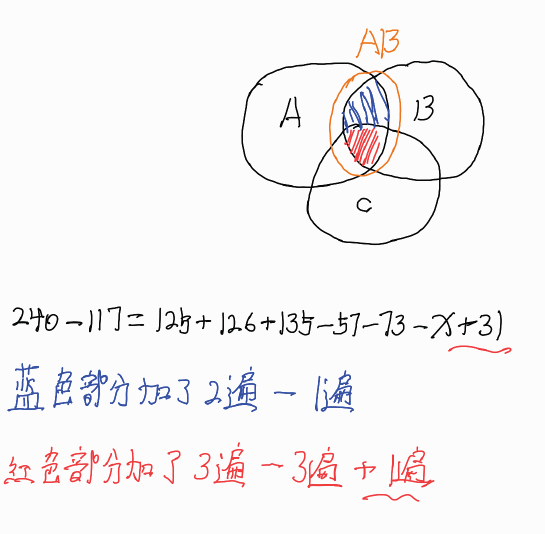 AB
A
B
C
240-117=125+126+135-57-73-x+31
蓝色部分加了2遍-1遍
红色部分加了3遍-3遍+1遍